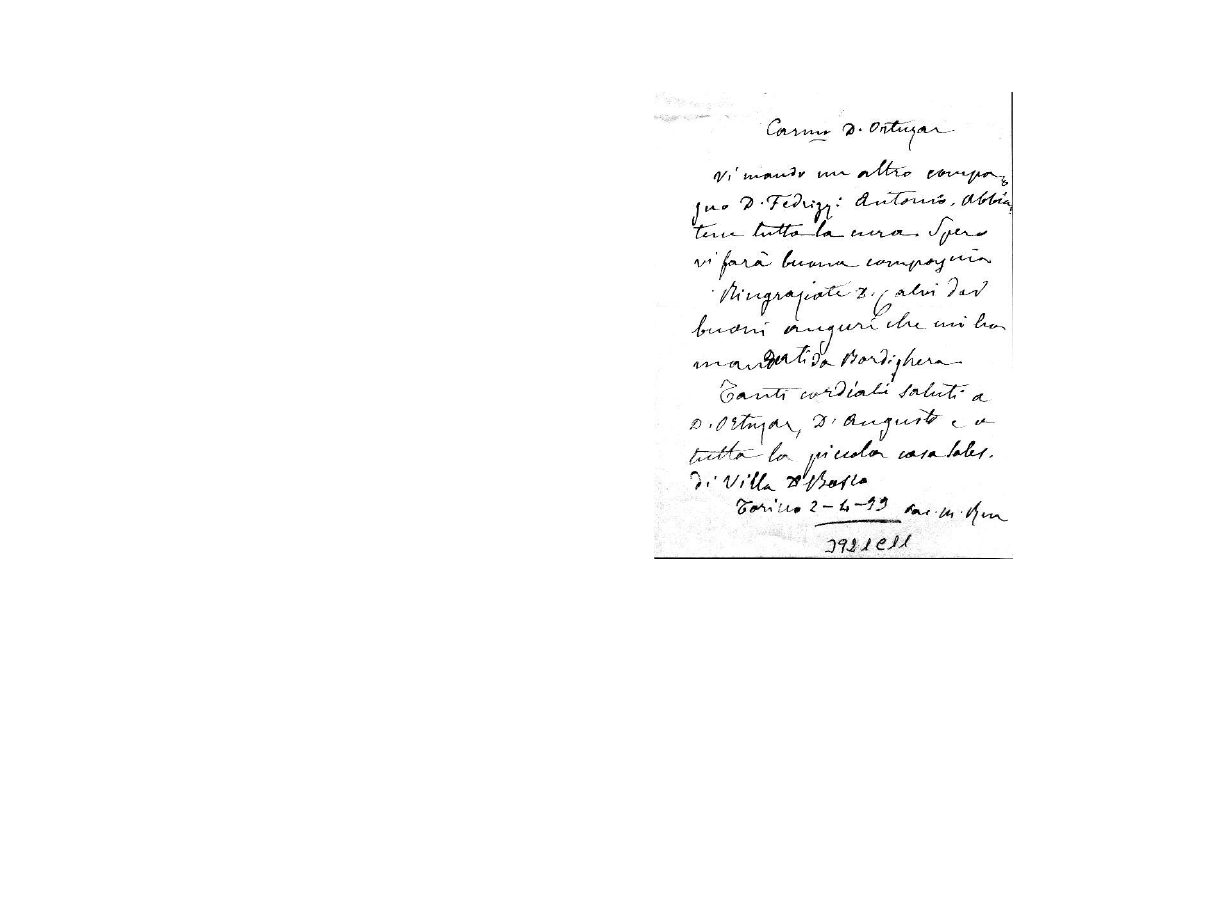 Car.mo D. Ortuzar
Vi mando un altro compa-
gno D. Fedrizzi Antonio. Abbia-
tene tutta la cura. Spero
vi farà buona compagnia
Ringraziate D. Calvi dei
buoni auguri che mi ha
mandati da Bordighera
Tanti cordiali saluti a
D. Ortuzar, D. Augusto e a
tutta la piccola casa Sales.
di Villa D. Bosco
Torino 2-4-99 Sac. M. Rua